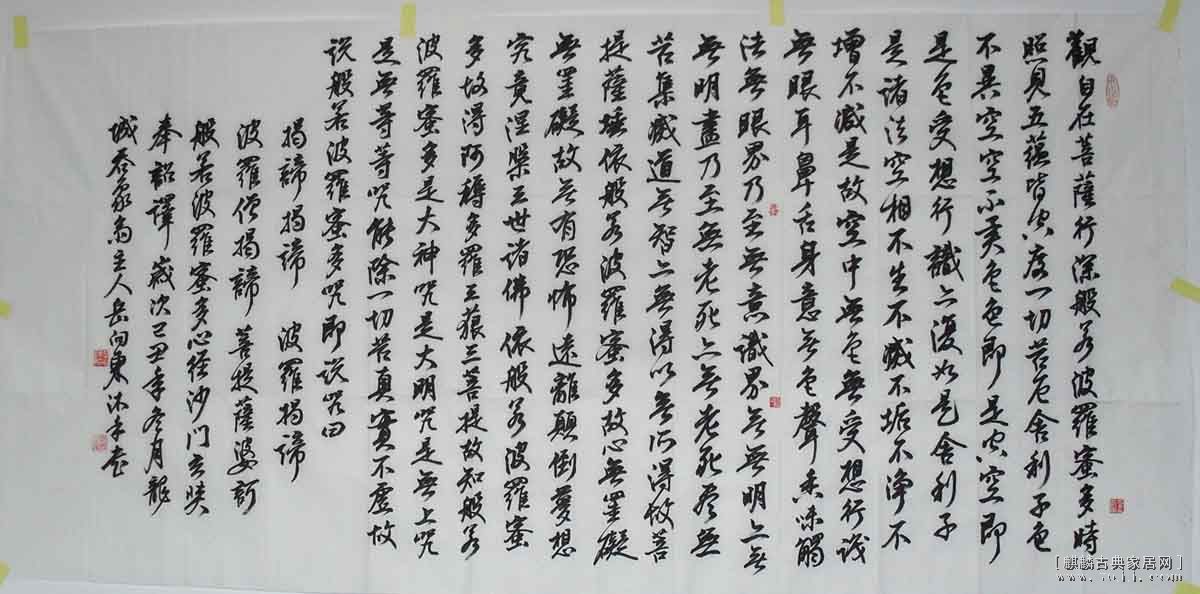 觀自在菩薩行深般若波羅蜜多時
照見五蘊皆空度一切苦厄舍利子色
不異空空不異色色即是空空即
是色受想行識亦復如是舍利子
是諸法空相不生不滅不垢不淨不
增不減是故空中無色無受想行識
無眼耳鼻舌身意無色聲香味觸
法無眼界乃至無意識界無無明亦無
無明盡乃至無老死亦無老死盡無
苦集滅道無智亦無得以無所得故菩
提薩埵依般若波羅蜜多故心無罣礙
無罣礙故無有恐怖遠離顛倒夢想
究竟涅槃三世諸佛依般若波羅蜜
多故得阿耨多羅三藐三菩提故知般若
波羅蜜多是大神咒是大明咒是無上咒
是無等等咒能除一切苦真實不虛故
說般若波羅蜜多咒即說咒曰
揭諦揭諦 波羅揭諦
波羅僧揭諦 菩提薩婆訶
般若波羅蜜多心經沙門玄奘
奉詔譯 歲次己丑年冬月龍
城吞象齋主人岳向東沐手書
[麒麟古典家居网]